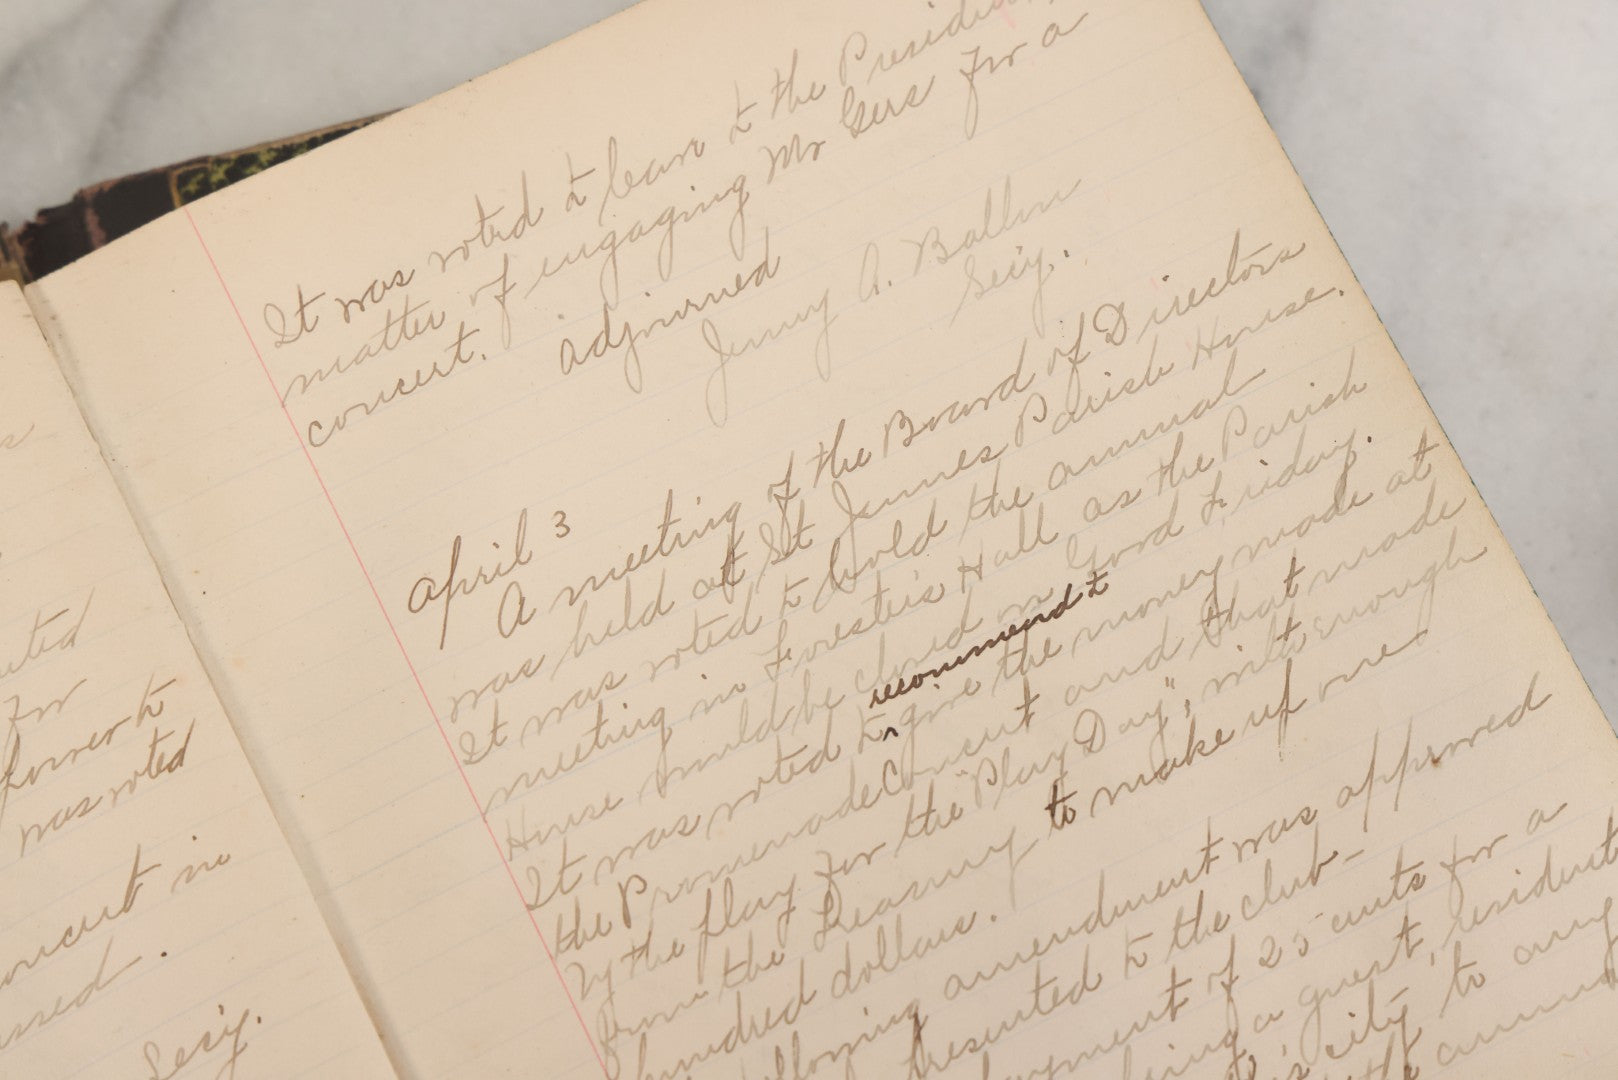 uted
For
Lower to
was voted
concert in
Secy.
It was voted to leave to the President
matter of engaging Mr Geus for a
concert. Adjourned
Jenny A. Ballou
Secy.
April 3
A meeting of the Board of Directors
was held at St James Parish House.
It was voted to hold the annual
meeting in Forester's Hall as the Parish
House would be closed on Good Friday.
It was voted to recommend to give the money made at
the Promenade Concert and that made
by the play for the "Play Day", with enough
from the treasury to make up one
hundred dollars.
following amendment was approved
presented to the club -
payment of 25 cents for a
bring a guest, resident
city to any
the annual